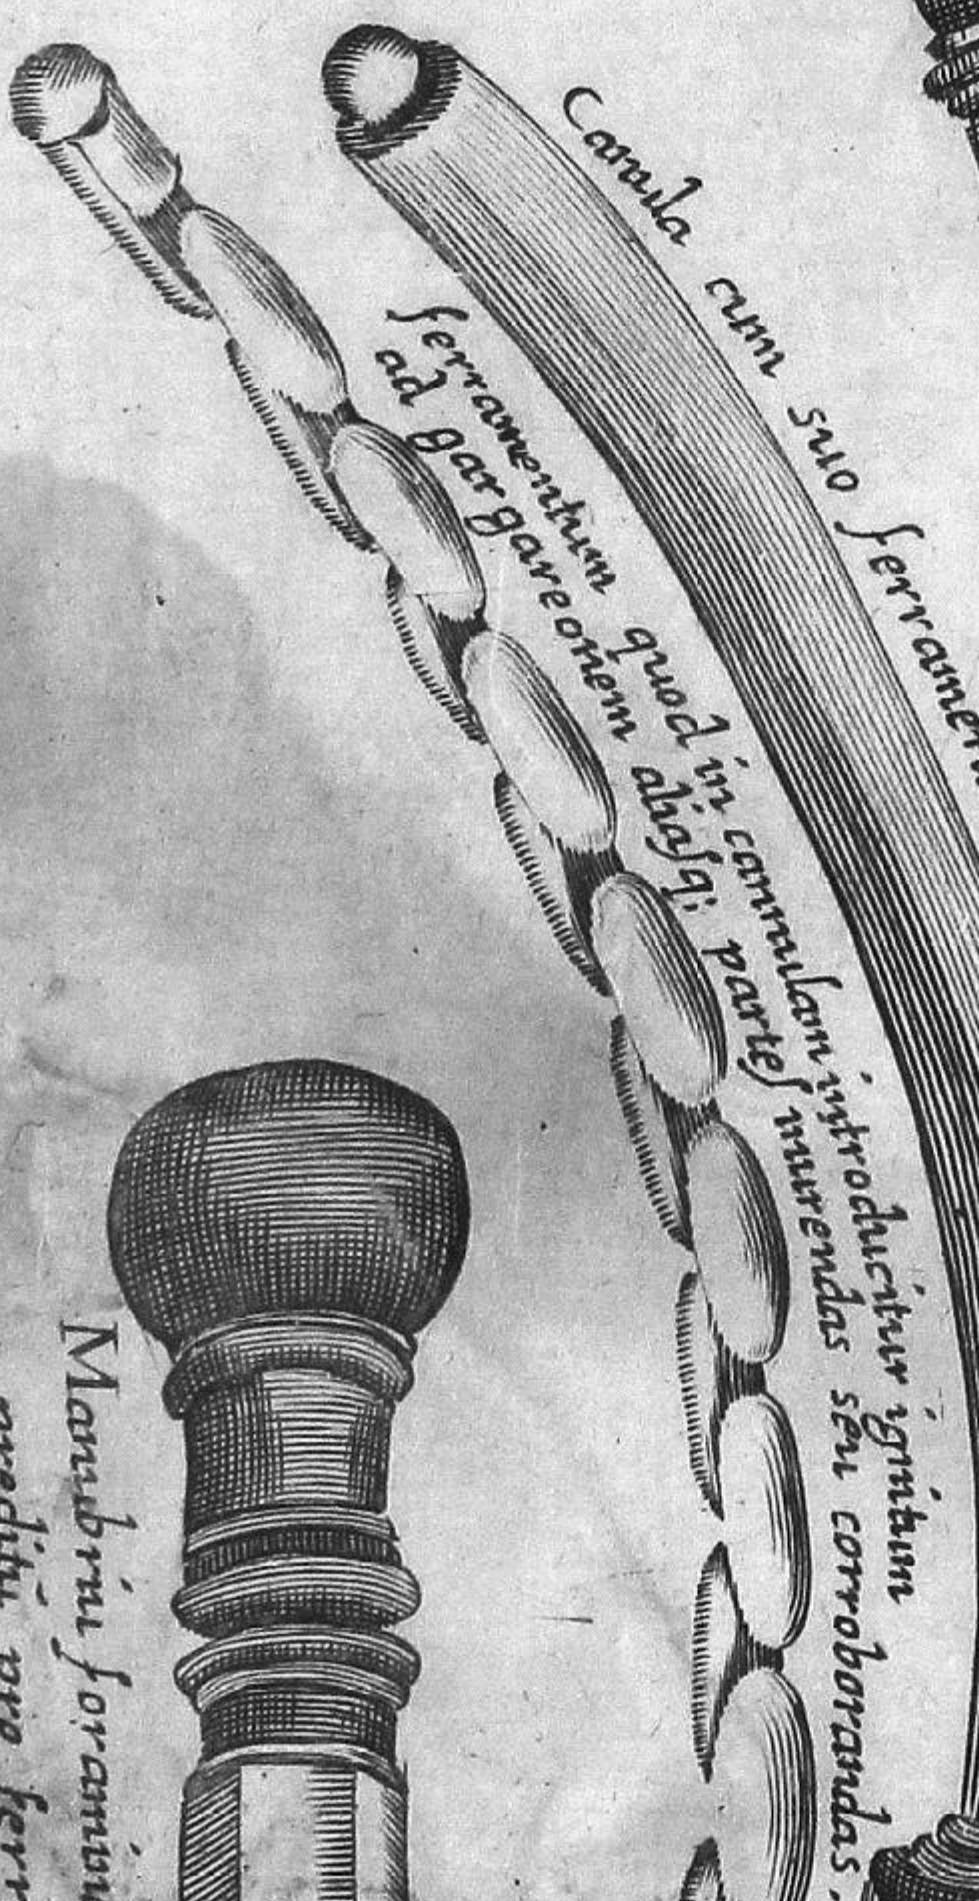 Canula cum suo ferramen
ferramentum quod in cannulam introducitur ignitum
ad gargareonem aliasq; partes inurendas seu corroborandas.
Manubrii foramin
pro ferr